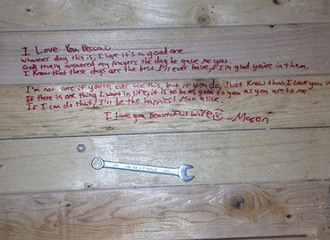 I Love You Becca,
Whatever day this is, I hope it's a good one.
God really answered my prayers the day he gave me you.
I know that these days are the best I'll ever have, & I'm glad you're in them.
I'm not sure if you'll ever see this, but if you do, Just know that I love you
If there is one thing I want in life, it is to be as good to you as you are to me.
If I can do that, I'll be the happiest man alive.
I love you beautiful wife
- Mason